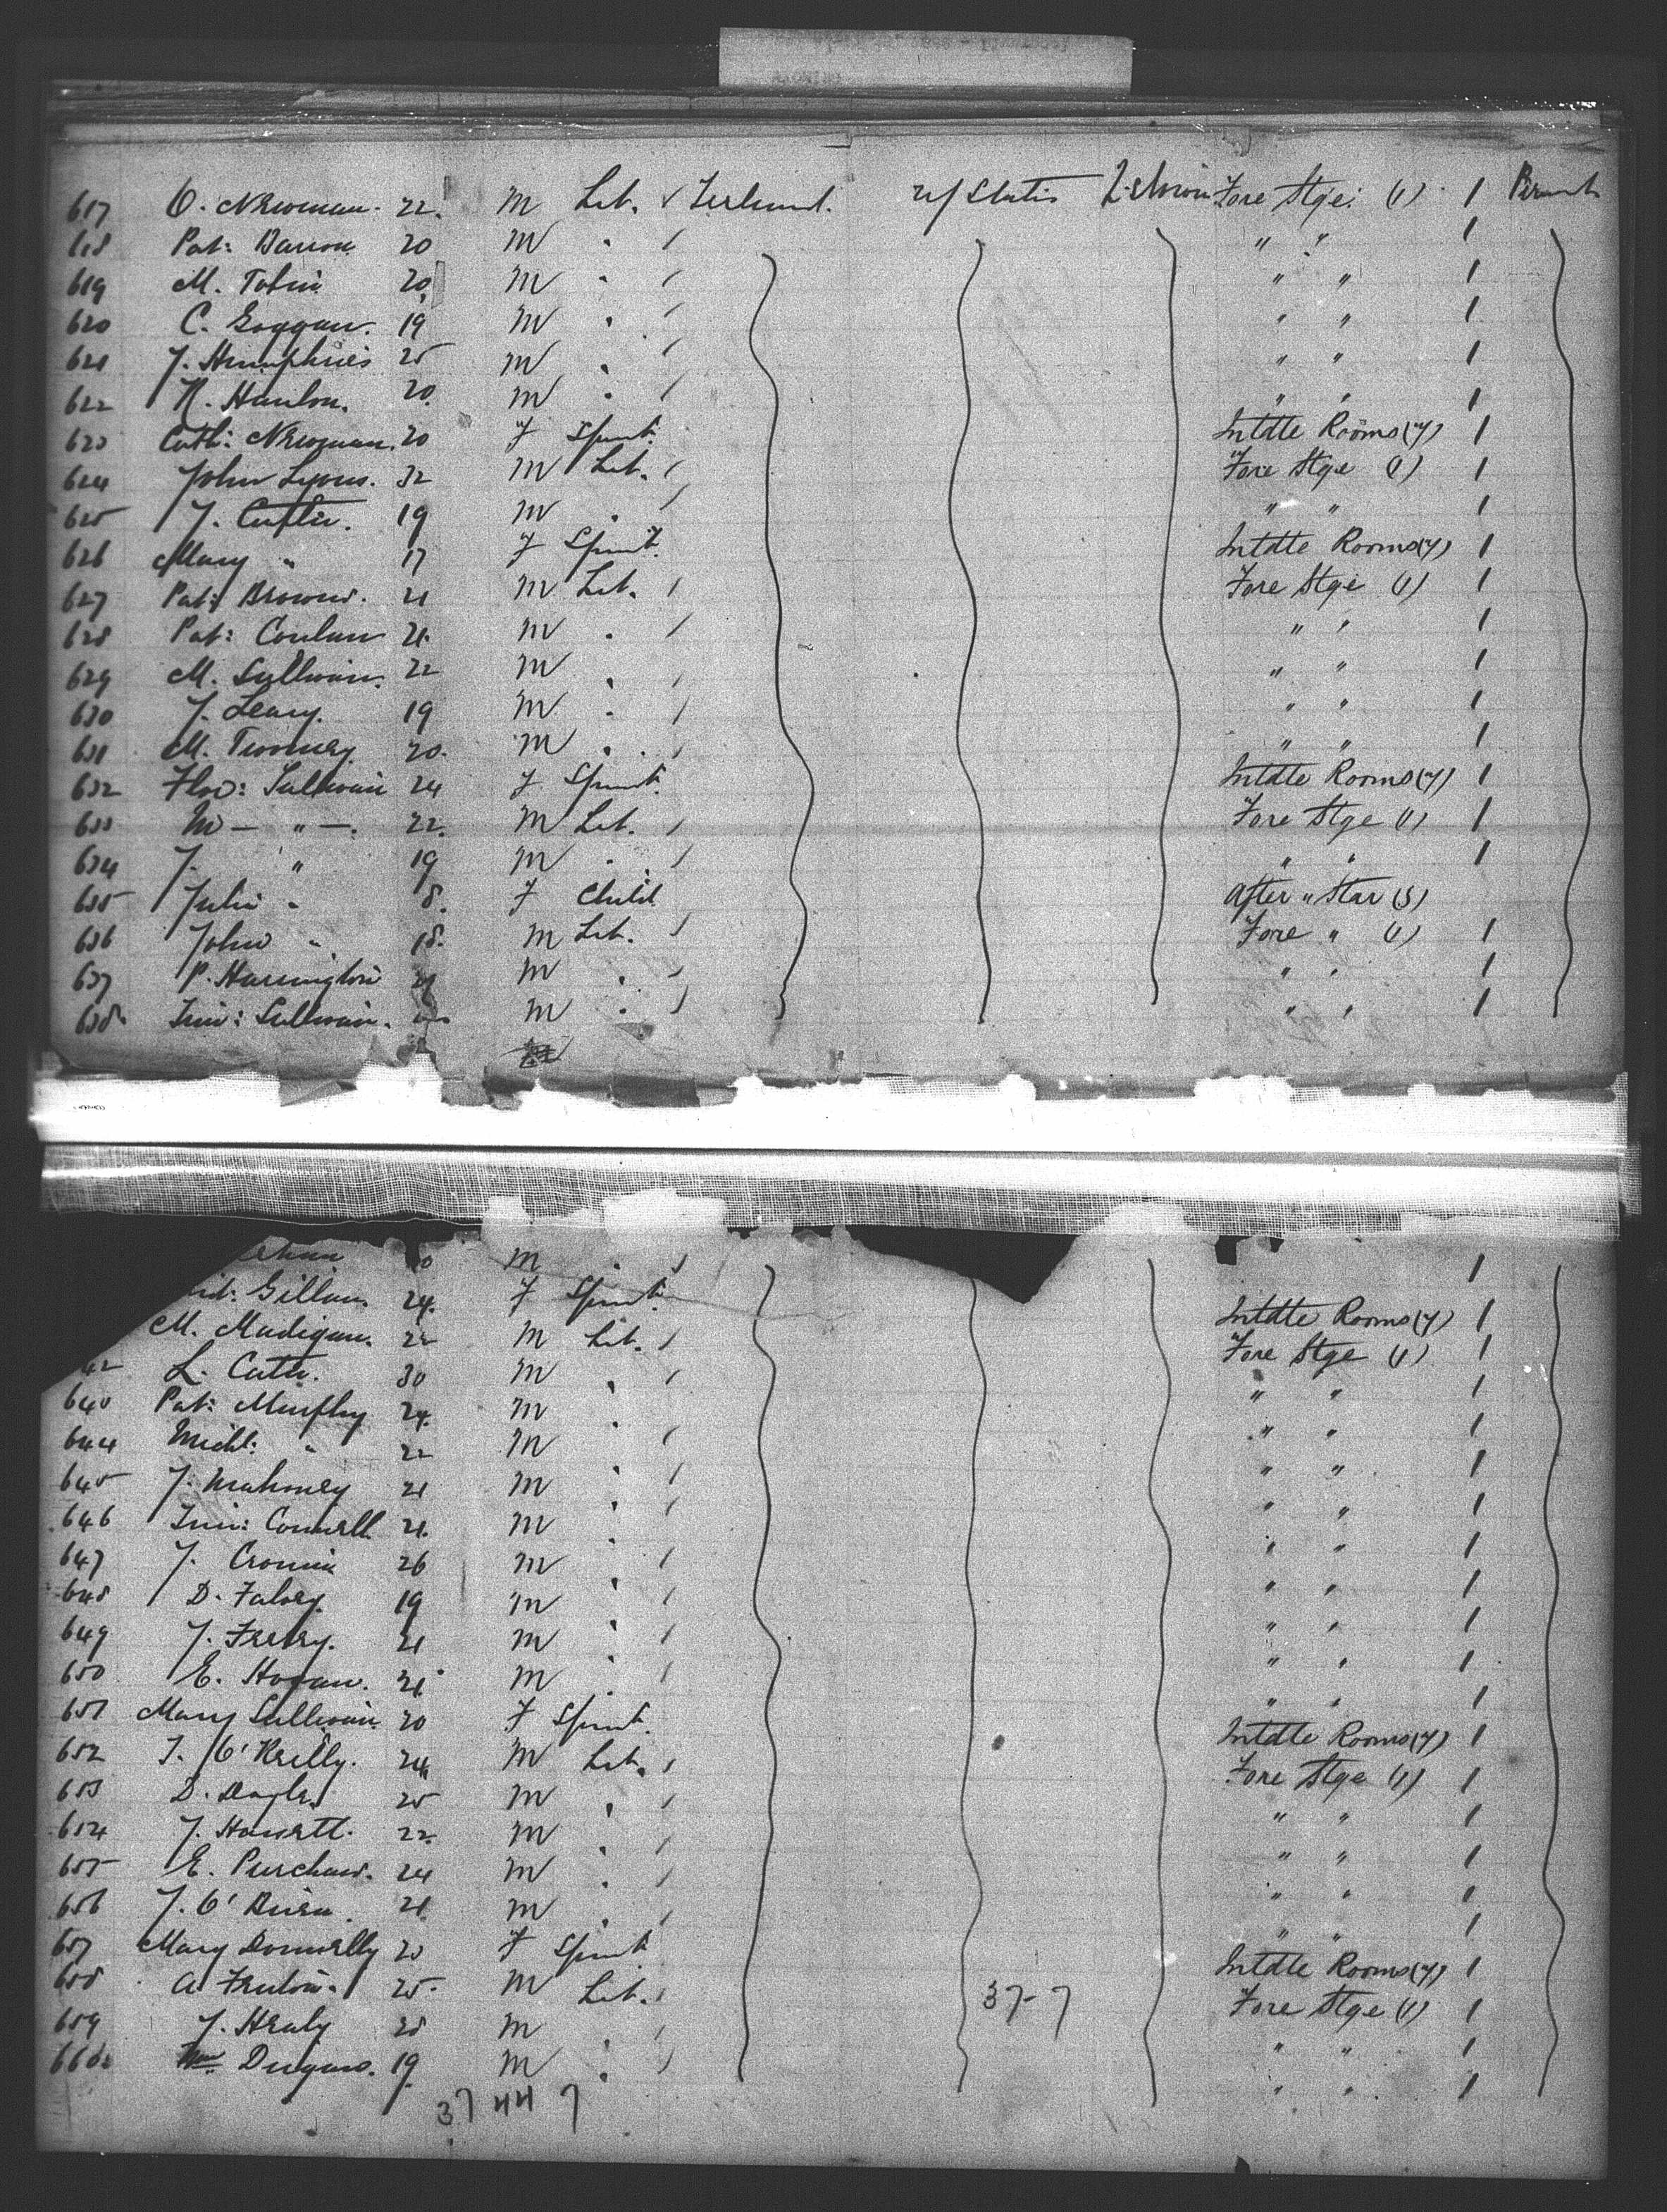 617 O. Newman. 22. M Lab. Ireland. U/States Fore Stge. (1) 1
618 Pat: Barron 20 M " " " 1
619 M. Tobin 20 M " " " 1
620 C. Goggan. 19 M " " " 1
621 J. Humphries 25 M " " " 1
622 R. Hanlon. 20. M " " " 1
623 Cath: Newman. 20 F Spinst. Intdte Rooms (4) 1
624 John Lyons. 32 M Lab. Fore Stge (1) 1
625 J. 19 M " " " 1
626 Mary " 17 F Spinst. Intdte Rooms (4) 1
627 Pat: Brown. 21 M Lab. Fore Stge (1) 1
628 Pat: Conlan 21. M " " " 1
629 M. Sullivan. 22 M " " " 1
630 J. Leary. 19 M " " " 1
631 M. Twomey 20. M " " " 1
632 Flo: Sullivan 24 F Spinst. Intdte Rooms (4) 1
633 M — " —. 22. M Lab. Fore Stge (1) 1
634 J. " 19 M " " " 1
635 Julia " 8. F Child After " Star (3)
636 John " 18. M Lab. Fore " (1) 1
637 P. Harrington 21 M " " " 1
638. Tim: Sullivan. M " " " 1
M " 1
Gillan. 24. F Spinst. Intdte Rooms (4) 1
M. Madigan. 22 M Lab. Fore Stge (1) 1
42 L. 30 M " " " 1
643 Pat: Murphy 24. M " " " 1
644 Michl: " 22 M " " " 1
645 J. Mahoney 21 M " " " 1
646 Tim: Connell 21. M " " " 1
647 J. Cronin 26 M " " " 1
648 D. Falvey. 19 M " " " 1
649 J. 21 M " " " 1
650 E. Hogan. 21 M " " " 1
651 Mary Sullivan 20 F Spinst. Intdte Rooms (4) 1
652 T. O'Reilly. 24 M Lab. Fore Stge (1) 1
653 D. Doyle. 25 M " " " 1
654 J. Howett. 22. M " " " 1
655 E. 24 M " " " 1
656 J. O'Brien. 21. M " " " 1
657 Mary Donnelly 20 F Spinst Intdte Rooms (4) 1
658 A. 25. M Lab. 37-7 Fore Stge (1) 1
659 J. Healy 28 M " " " 1
660. Wm Duggan. 19. M " " " 1
37 44 7